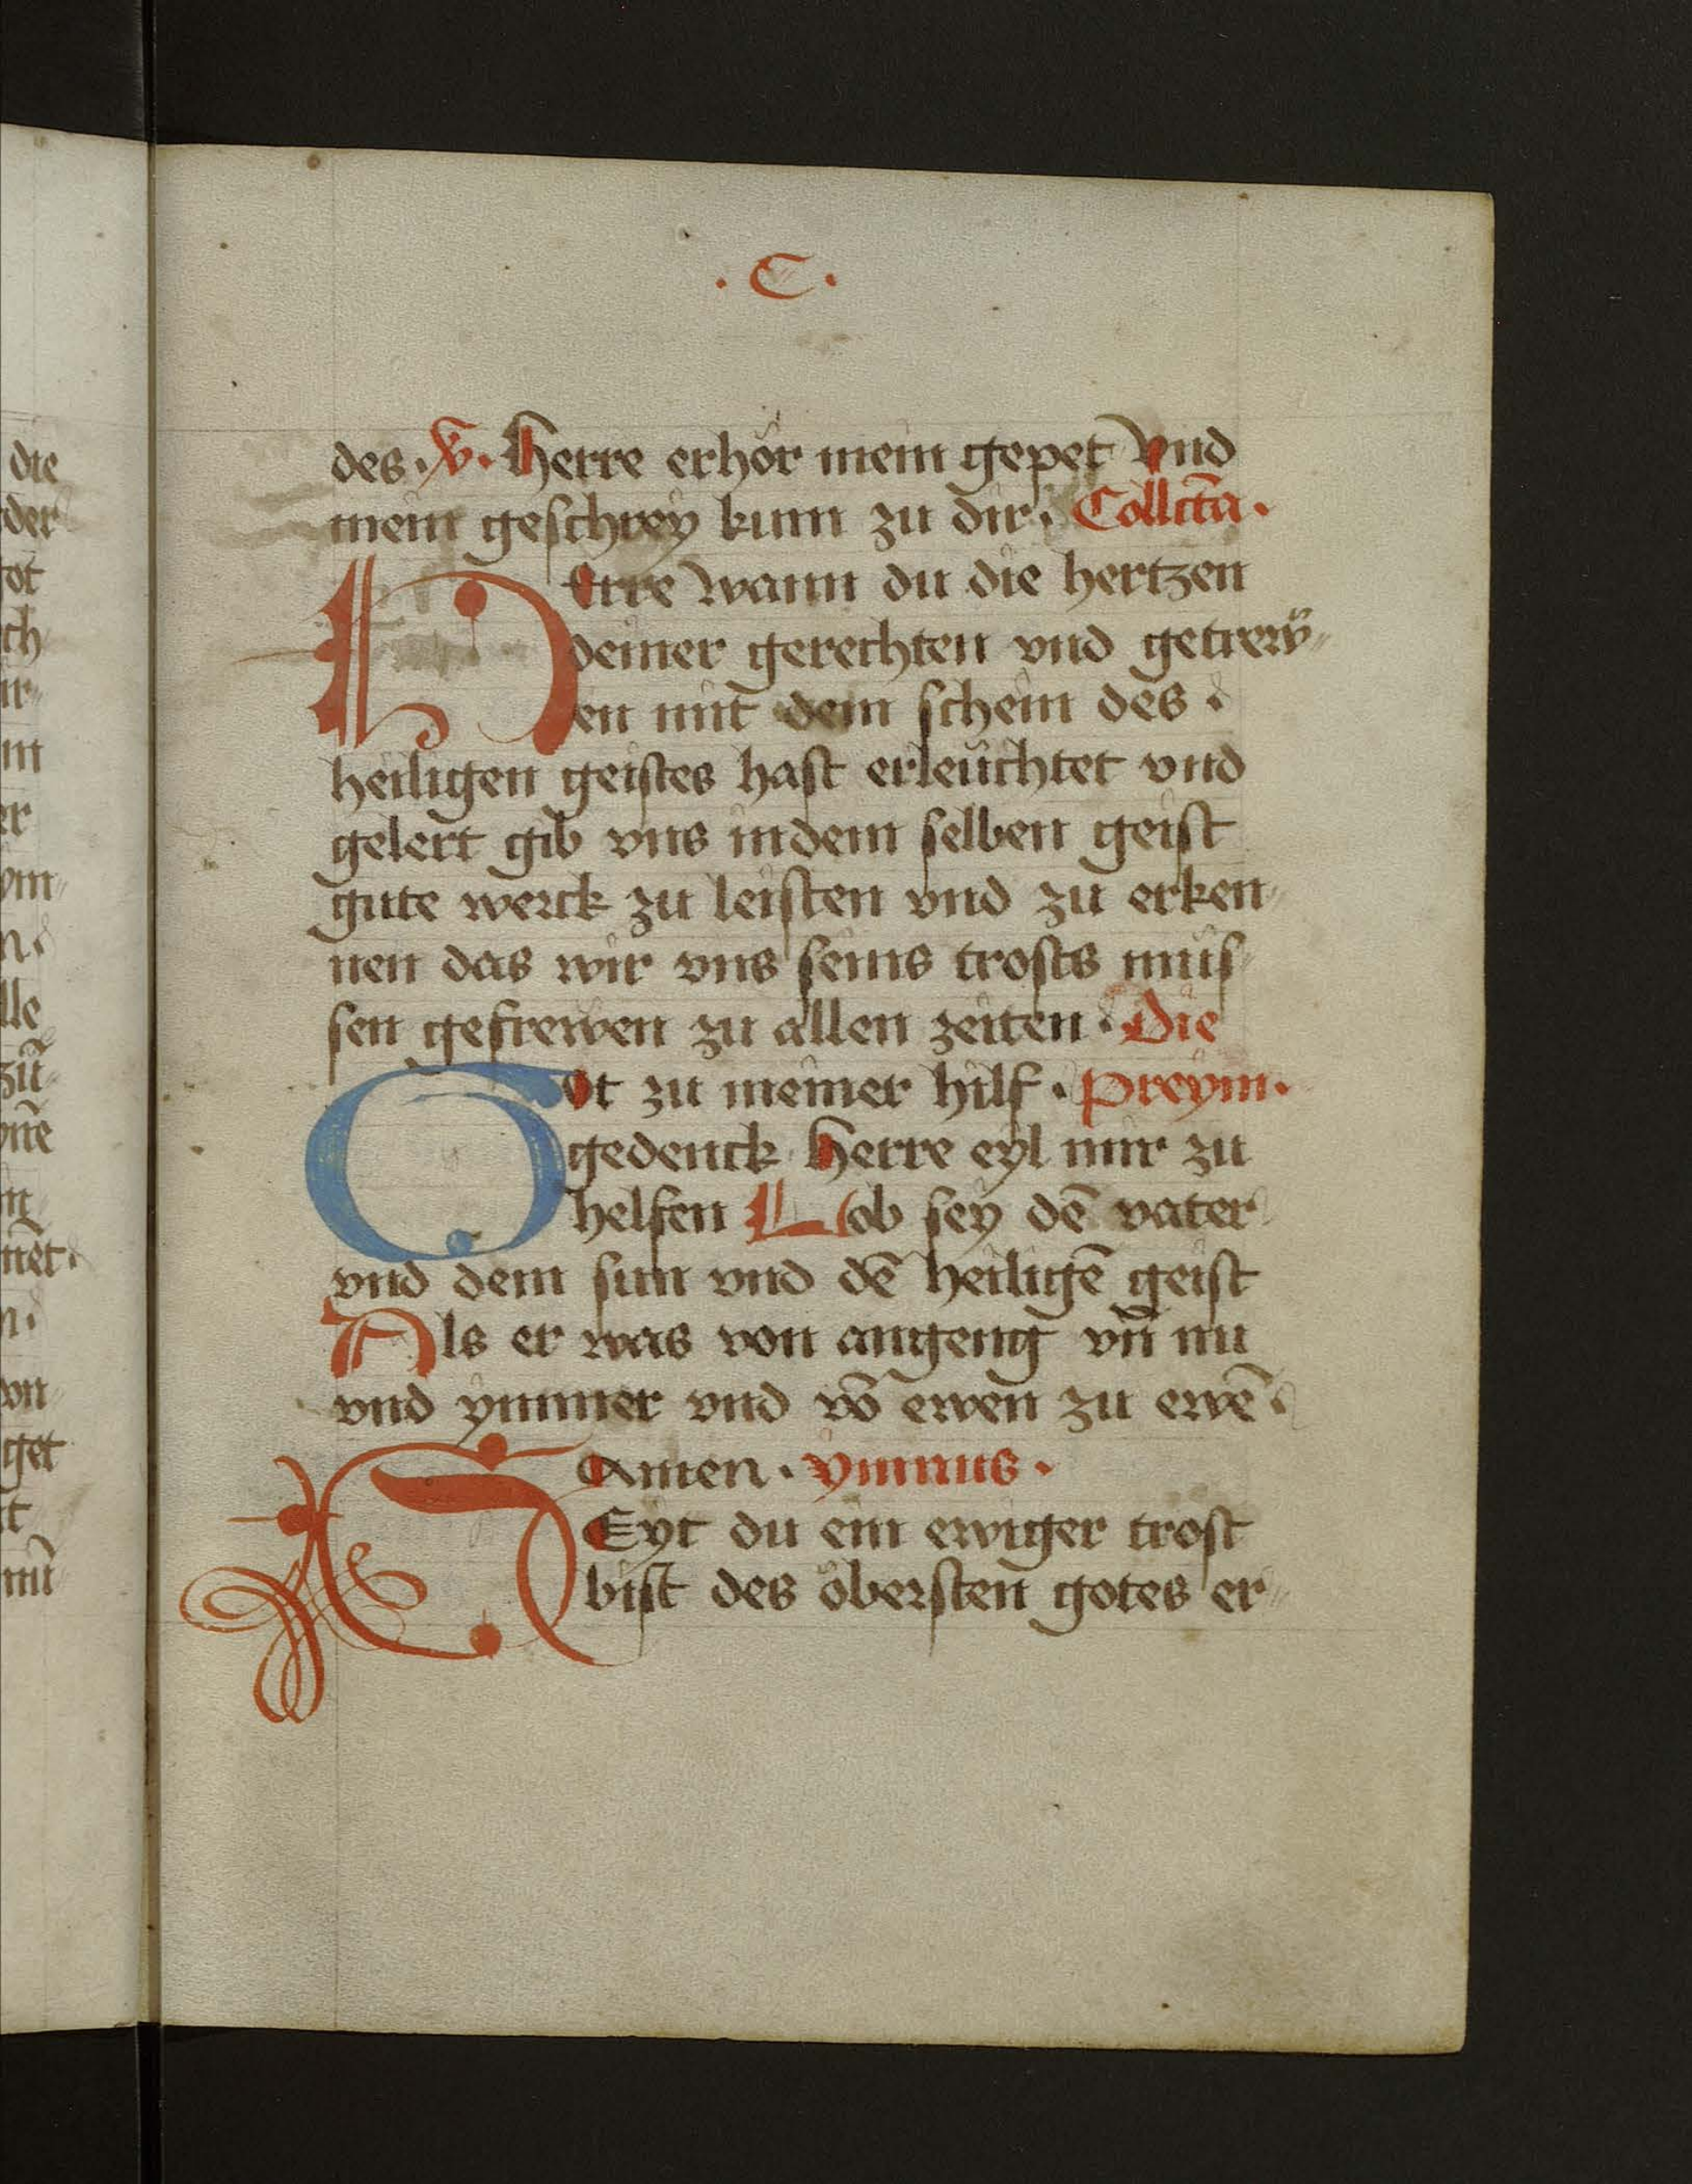 . C .
des · V · Herre erhör mein gepet Vnd
mein geschrey kum zu dir · Collcta̅ ·
Herre wann du die hertzen
deiner gerechten vnd getrew̋
en mit dem schein des ·
heiligen geistes hast erleűchtet vnd
gelert gib vns indem selben geist
gute werck zu leisten vnd zu erken
nen das wir vns seins trosts müs
sen gefrewen zu allen zeiten · Die
Got zu meiner hilf · Preym ·
gedenck Herre eyl mir zu
helfen Lob sey dē vater
vnd dem sun vnd dē heiligē geist
Als er was von angeng vn̄ nu
vnd ymmer vnd vō ewen zu ewē ·
Amen · ymnus ·
SEyt du ein ewiger trost
bist des öbersten gotes er